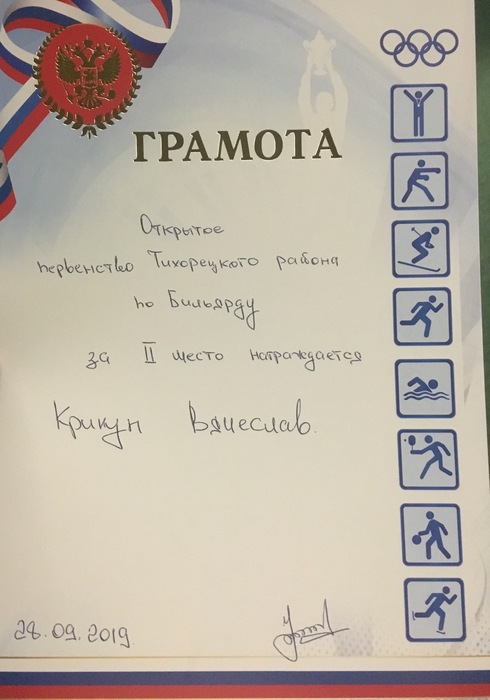 ГРАМОТА
Открытое
первенство Тихорецкого района
по Бильярду
за II место награждается
Крикун Вячеслав.
28.09.2019